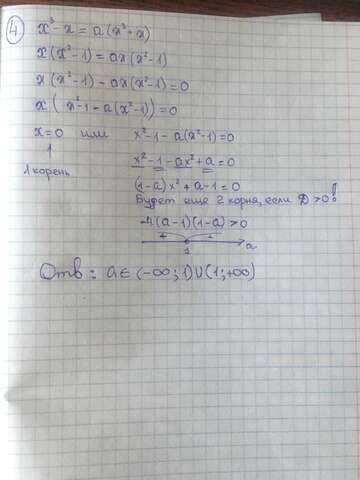 4 x³-x = a(x³-x)
x(x²-1) = ax(x²-1)
x(x²-1) - ax(x²-1) = 0
x(x²-1-a(x²-1)) = 0
x=0 или x²-1-a(x²-1)=0
1
1 корень
x²-1-ax²+a=0
(1-a)x²+a-1=0
Будет еще 2 корня, если D>0!
-4(a-1)(1-a)>0
+ + a
1
Отв: a∈(-∞;1)U(1;+∞)